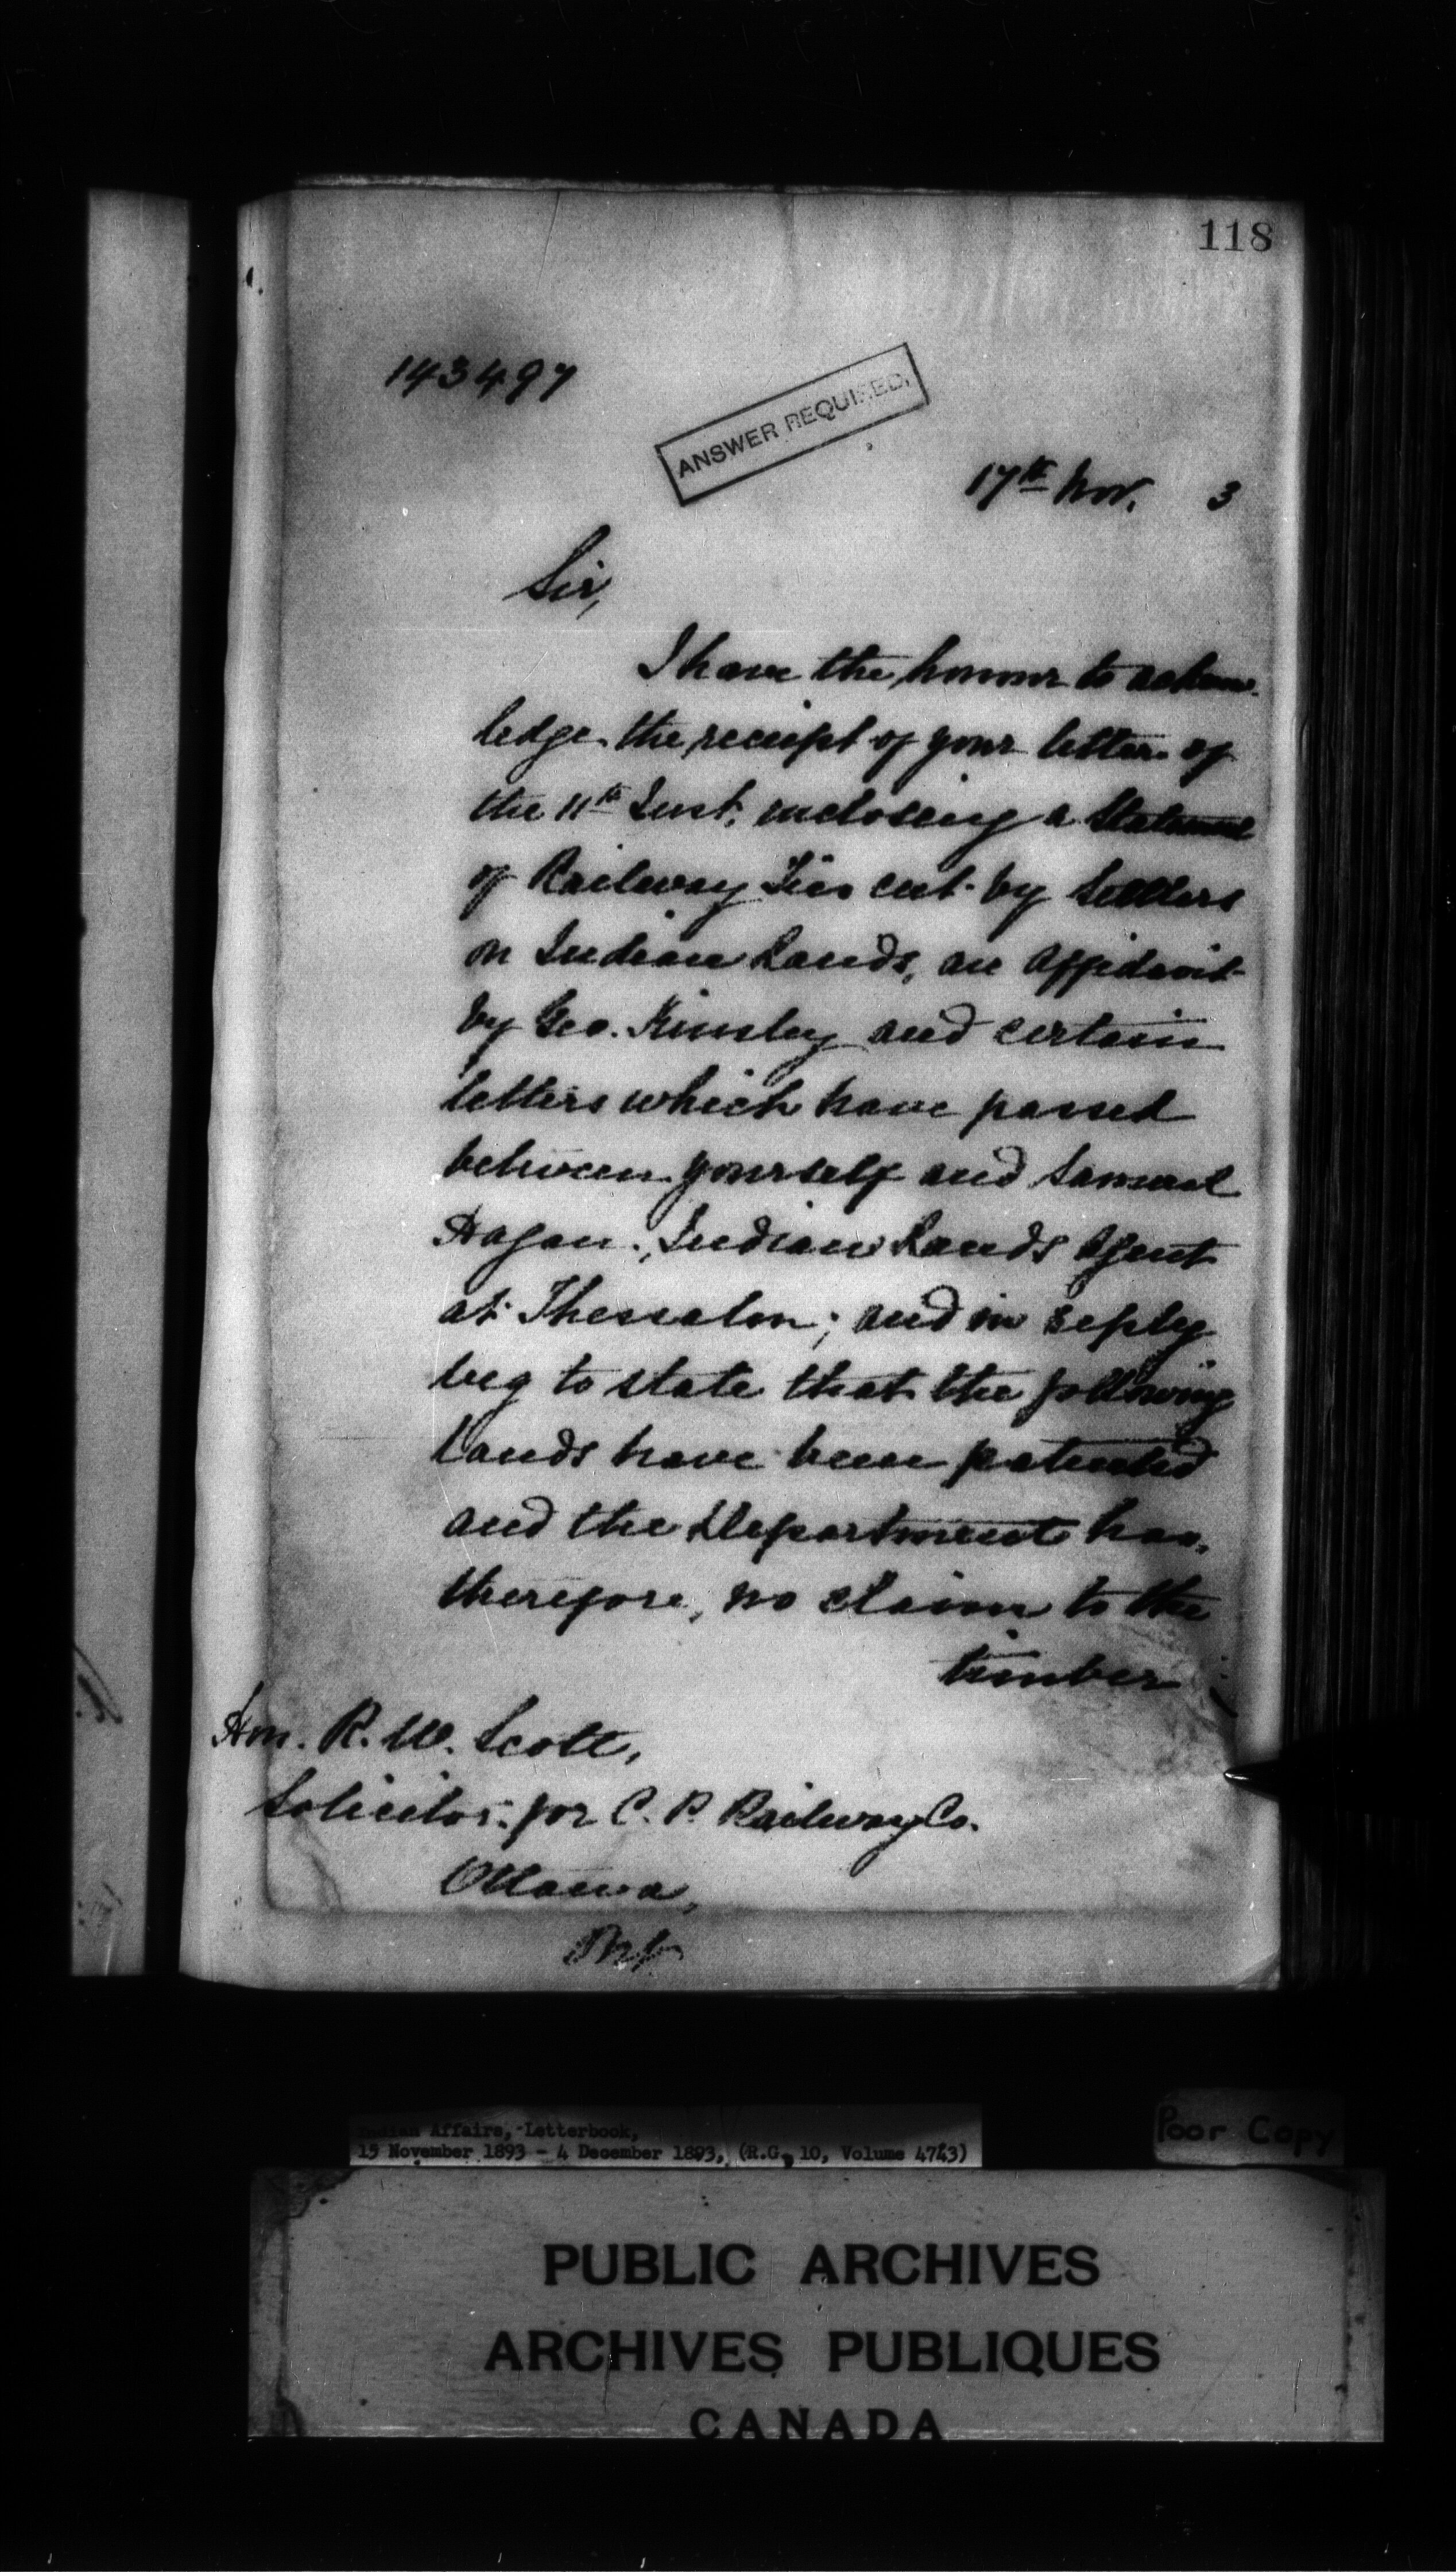 118
143497
ANSWER REQUIRED.
17th Nov. 3
Sir,
I have the honour to acknow-
ledge the receipt of your letter of
the 11th Inst. inclosing a Statement
of Railway Ties cut by Settlers
on Indian Lands, an Affidavit
by Geo. Kinsley and certain
letters which have passed
between yourself and Samuel
Hagan, Indian Lands Agent
at Thessalon; and in reply
beg to state that the following
lands have been patented
and the Department has,
therefore, no claim to the
timber
Hon. R. W. Scott,
Solicitor for C. P. Railway Co.
Ottawa,
Indian Affairs, Letterbook,
15 November 1893 - 4 December 1893, (R.G. 10, Volume 4743)
Poor Copy
PUBLIC ARCHIVES
ARCHIVES PUBLIQUES
CANADA